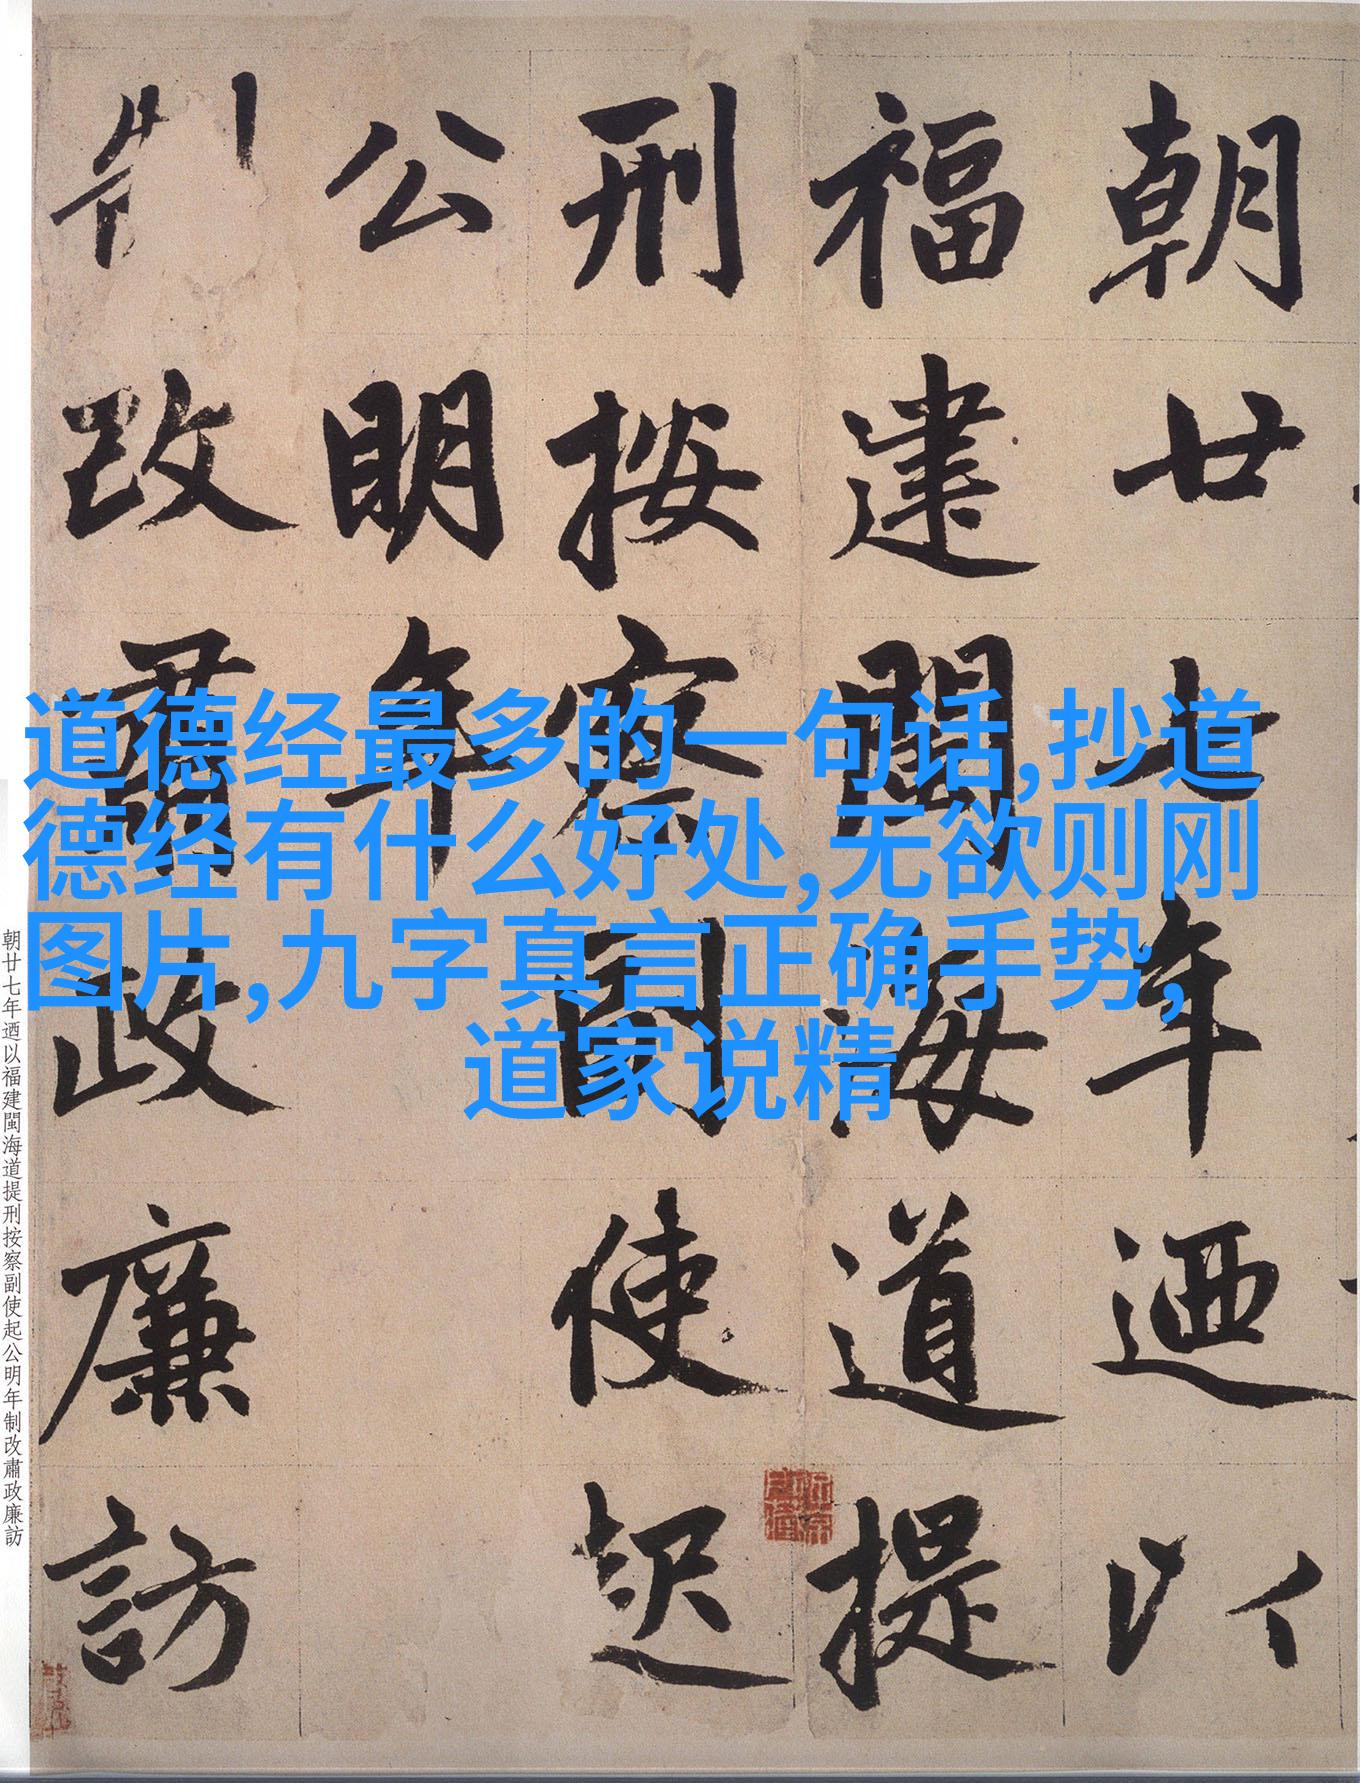 朝廿七年迺以
福建閩海道提
刑按察副使起
公明年
制改肅政廉訪
道德经最多的一句话,抄道
德经有什么好处,无欲则刚
图片,九字真言正确手势,
道家说精
朝廿七年迺以福建閩海道提刑按察副使起公明年制改肅政廉訪